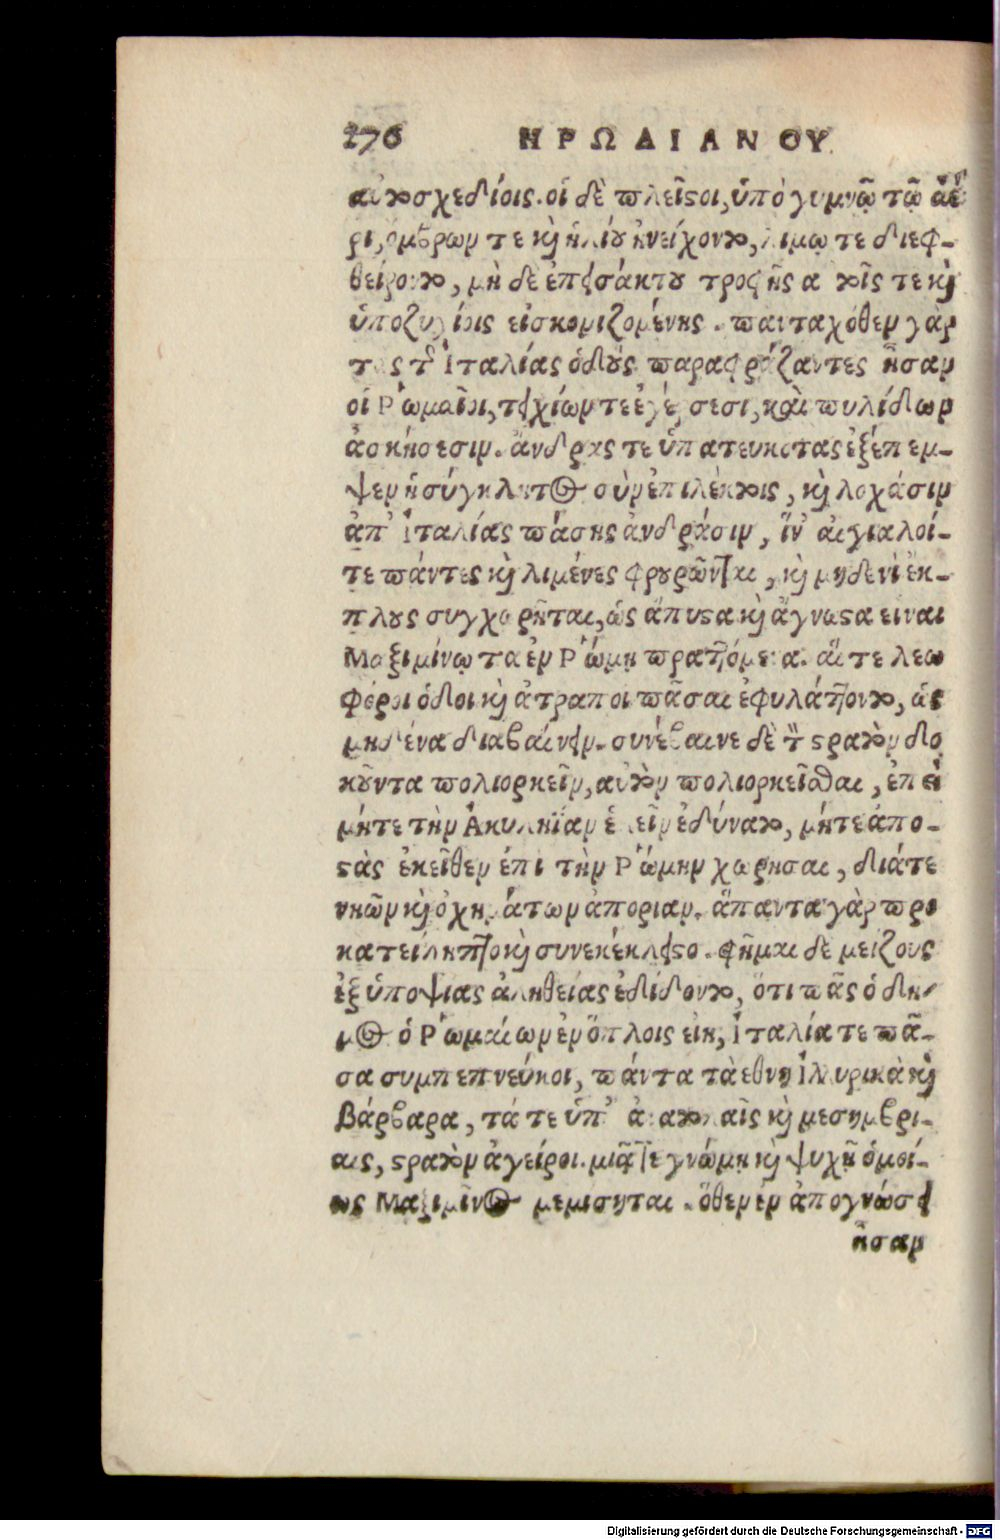 276 ΗΡΩΔΙΑΝΟΥ
αὐτοσχεδίοις. οἱ δὲ πλεῖστοι, ὑπὸ γυμνῷ τῷ ἀέ-
ρι, ὄμβρων τε καὶ ἡλίου ἠνείχοντο, λιμῳ τε διεφ-
θείροντο, μὴ δὲ ἐπεισάκτου τροφῆς αὐτοῖς τε καὶ
ὑποζυγίοις εἰσκομιζομένης. πανταχόθεν γὰρ
τὰς τῆς Ἰταλίας ὁδοὺς παραφράξαντες ἦσαν
οἱ Ῥωμαῖοι, τειχίων τε ἐγέρσεσι, καὶ πυλίδων
ἀσκήσεσιν. ἄνδρας τε ὑπατευκότας ἐξέπεμ-
ψεν ἡ σύγκλητος σὺν ἐπιλέκτοις, καὶ λογάσιν
ἀπ' Ἰταλίας πάσης ἀνδράσιν, ἵν' αἰγιαλοί-
τε πάντες καὶ λιμένες φρουρῶνται, καὶ μηδενὶ ἔκ-
πλους συγχορῆται, ὡς ἄπυστα καὶ ἄγνωστα εἶναι
Μαξιμίνῳ τα ἐν Ῥώμῃ πραττόμενα. αἵ τε λεω
φόροι ὁδοι καὶ ἀτραποι πᾶσαι ἐφυλάττοντο, ὡς
μηδένα διαβαίνειν. συνέβαινε δὲ τὸν στρατὸν δο
κοῦντα πολιορκεῖν, αὐτὸν πολιορκεῖσθαι, ἐπεὶ
μήτε τὴν Ἀκυληΐαν ἑλεῖν ἐδύνατο, μήτε ἀπο-
στὰς ἐκεῖθεν ἐπι τὴν Ῥώμην χωρησαι, διάτε
νηῶν καὶ ὀχημάτων ἀποριαν. ἅπαντα γὰρ προ
κατείληπτο καὶ συνεκέκλειστο. φῆμαι δε μείζους
ἐξ ὑποψιας ἀληθείας ἐδίδοντο, ὅτι πᾶς ὁ δη-
μος ὁ Ῥωμαίων ἐν ὅπλοις εἰη, Ἰταλία τε πᾶ-
σα συμπεπνεύκοι, πάντα τὰ εθνη Ἰλλυρικὰ καὶ
βάρβαρα, τά τε ὑπ' ἀνατολαῖς καὶ μεσημβρι-
αις, στρατὸν ἀγείροι. μιᾷ τε γνώμῃ καὶ ψυχῇ ὁμοί-
ως Μαξιμῖνος μεμισηται. ὅθεν ἐν ἀπογνώσει
ἦσαν
Digitalisierung gefördert durch die Deutsche Forschungsgemeinschaft - DFG